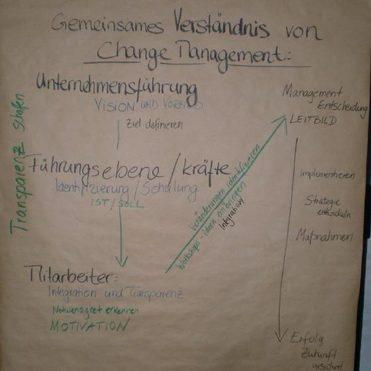 Gemeinsames Verständnis von
Change Management:
Unternehmensführung
VISION UND
Ziel definieren
Transparenz schaffen
Führungsebene / kräfte
Identifizierung / Schulung
IST / SOLL
Mitarbeiter:
Integration und Transparenz
Notwendigkeit erkennen
MOTIVATION
Veränderungen identifizieren
Workshops - Ideen einbringen
Integration
Management
Entscheidung
LEITBILD
Implementieren
Strategie
entwickeln
Maßnahmen
Erfolg
Zukunft